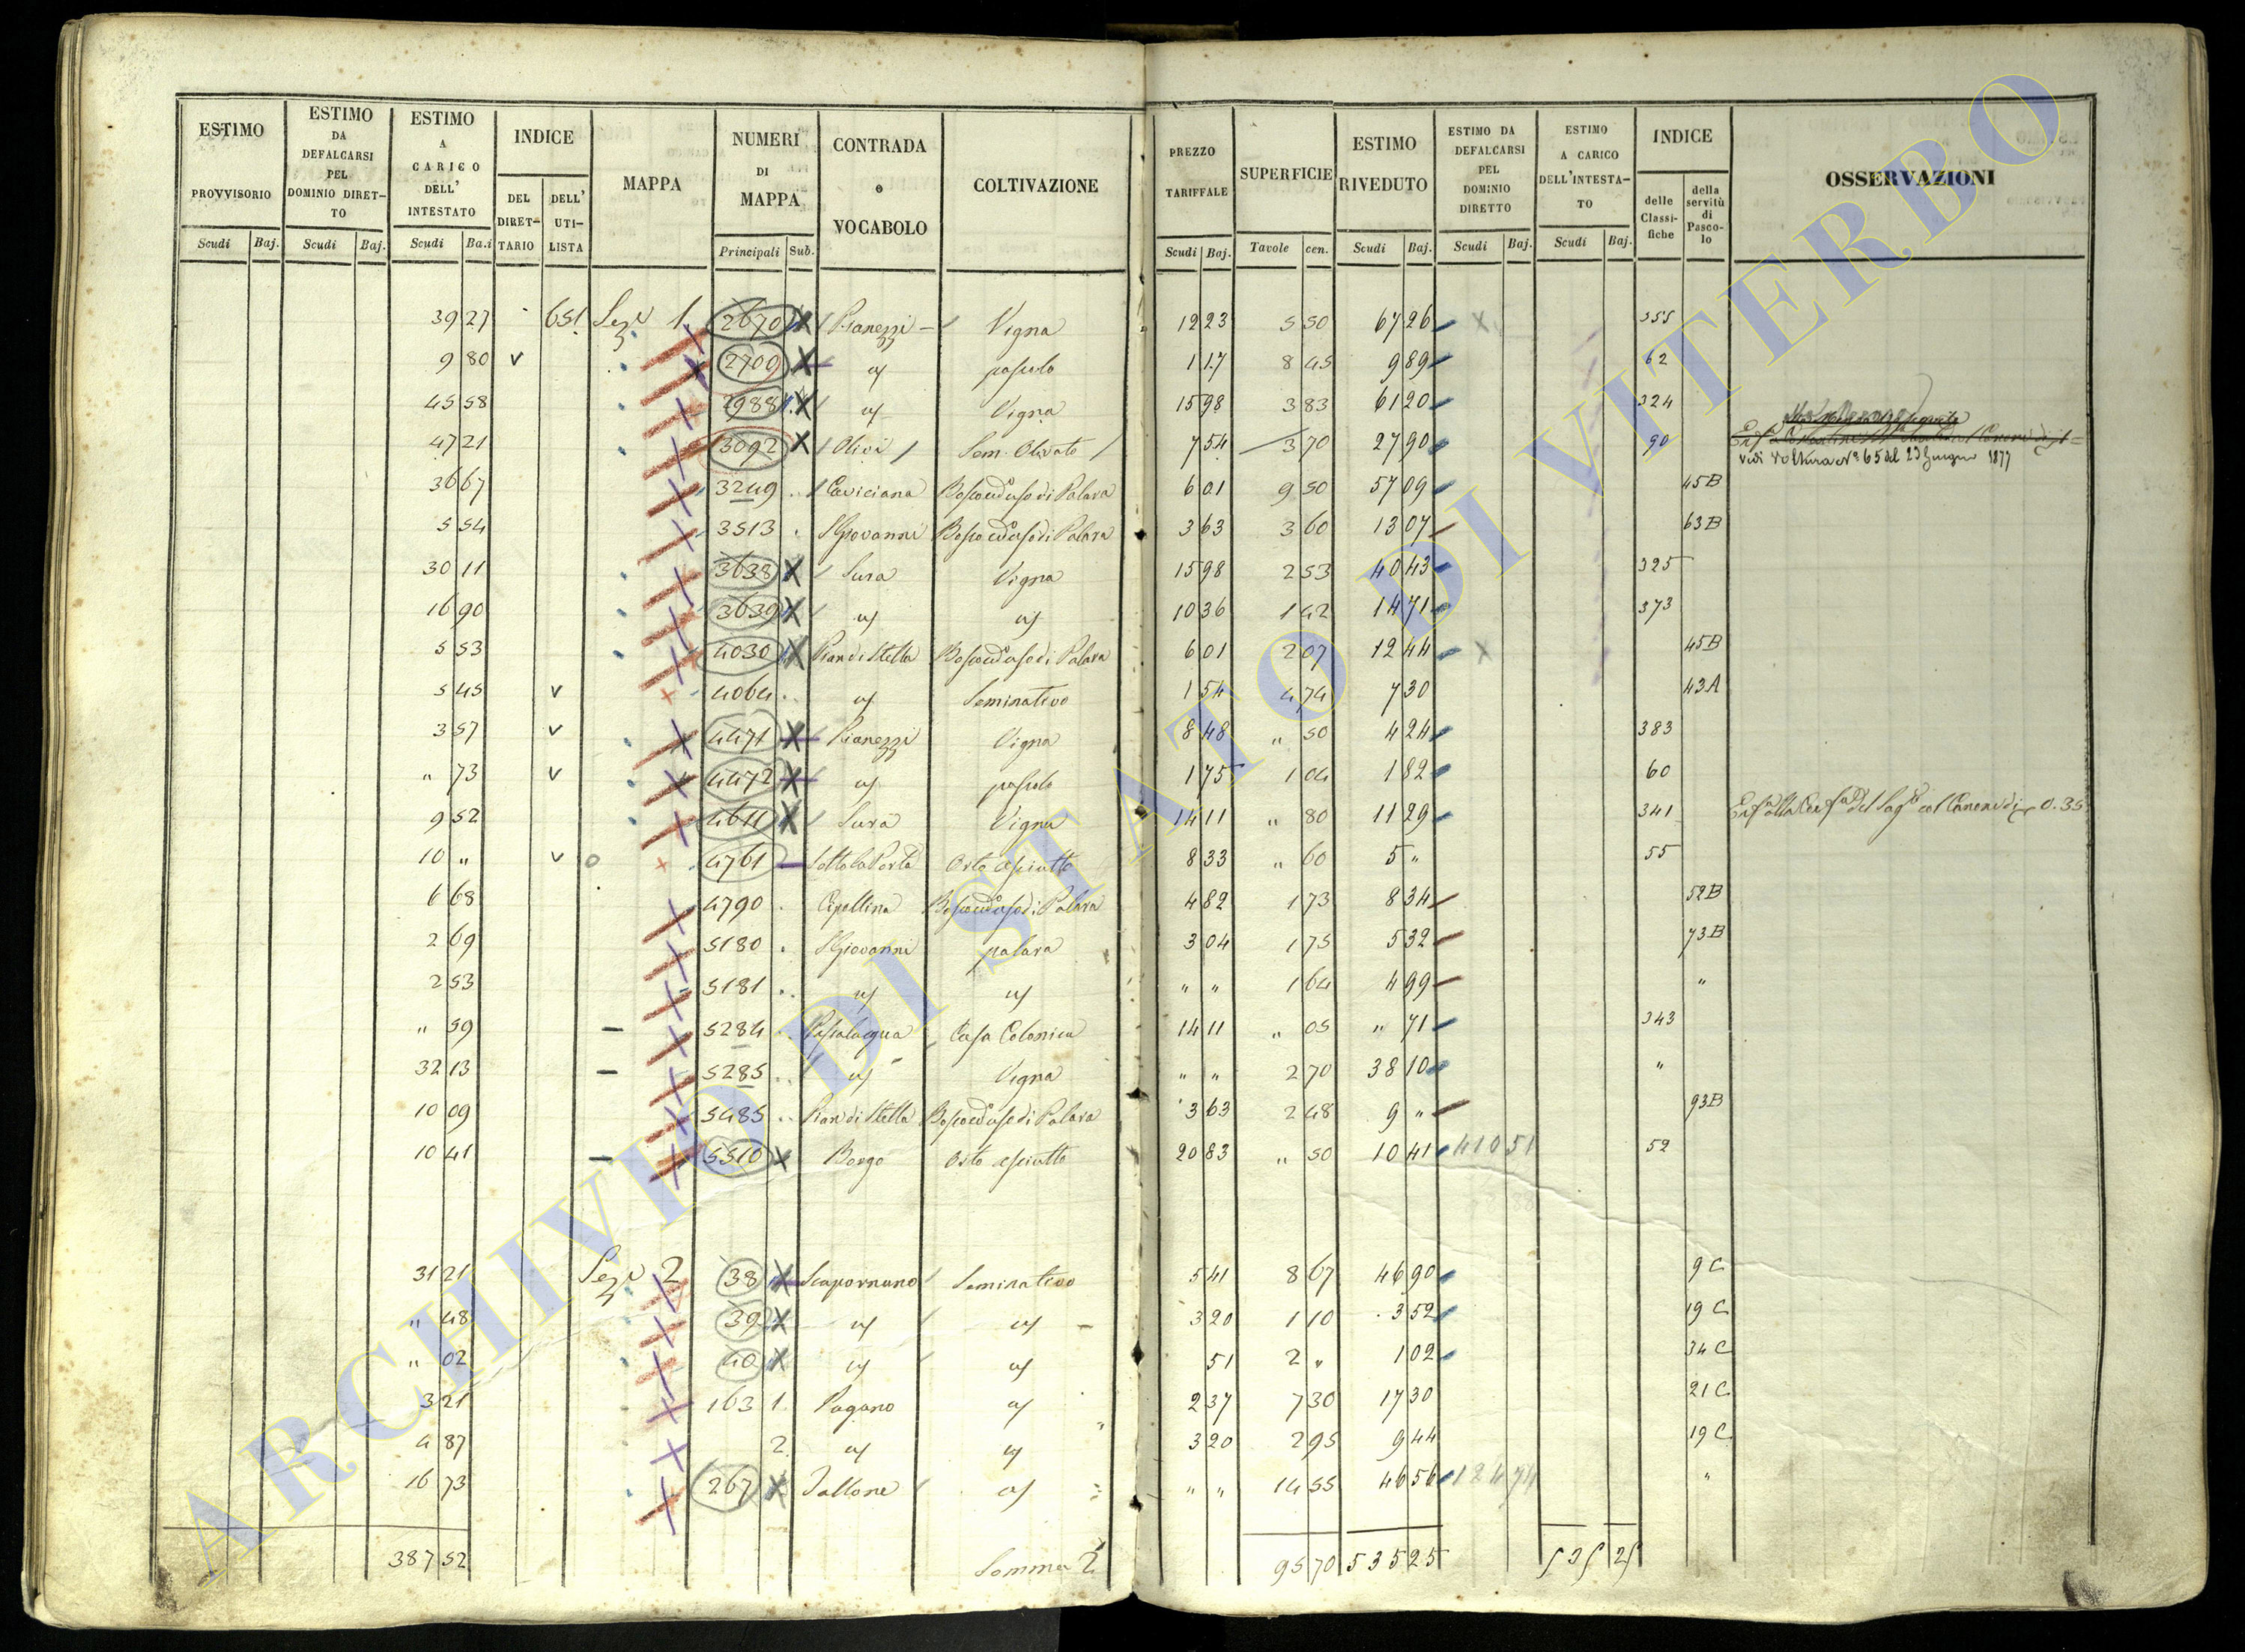 ESTIMO PROVVISORIO | ESTIMO DA DEFALCARSI PEL DOMINIO DIRETTO | ESTIMO A CARICO DELL' INTESTATO | INDICE DEL DIRETTARIO | DELL' UTILISTA | MAPPA | NUMERI DI MAPPA | CONTRADA o VOCABOLO | COLTIVAZIONE | PREZZO TARIFFALE | SUPERFICIE | ESTIMO RIVEDUTO | ESTIMO DA DEFALCARSI PEL DOMINIO DIRETTO | ESTIMO A CARICO DELL'INTESTATO | INDICE delle Classifiche | della servitù di Pascolo | OSSERVAZIONI
Scudi | Baj. | Scudi | Baj. | Scudi | Ba.i | Principali | Sub. | Scudi | Baj. | Tavole | cen. | Scudi | Baj. | Scudi | Baj. | Scudi | Baj.
39 27 | 651 | Sez.e 1 | 2670 | Pianezzi | Vigna | 12 23 | 5 50 | 67 26 | 355
9 80 | v | 2709 | " | pascolo | 1 17 | 8 45 | 9 89 | 62
45 58 | 2988 | " | Vigna | 15 98 | 3 83 | 61 20 | 324
47 21 | 3092 | Olivi | Sem. Olivato | 7 54 | 3 70 | 27 90 | 90 | Vedi Voltura N° 65 del 23 Giugno 1877
36 67 | 3249 | Caviciana | Bosco ced° uso di Palara | 6 01 | 9 50 | 57 09 | 45B
5 54 | 3513 | S Giovanni | Bosco ced° uso di Palara | 3 63 | 3 60 | 13 07 | 63B
30 11 | 3638 | Sura | Vigna | 15 98 | 2 53 | 40 43 | 325
16 90 | 3639 | " | " | 10 36 | 1 42 | 14 71 | 373
5 53 | 4030 | Pian di Stella | Bosco ced° uso di Palara | 6 01 | 2 07 | 12 44 | 45B
5 45 | v | 4064 | " | Seminativo | 1 54 | 4 74 | 7 30 | 43A
3 57 | v | 4471 | Pianezzi | Vigna | 8 48 | " 50 | 4 24 | 383
" 73 | v | 4472 | " | pascolo | 1 75 | 1 04 | 1 82 | 60
9 52 | 4611 | Sura | Vigna | 14 11 | " 80 | 11 29 | 341 | 0.35
10 " | v | 4761 | Sotto la Porta | Orto asciutto | 8 33 | " 60 | 5 " | 55
6 68 | 4790 | Cipollina | Bosco ced° uso di Palara | 4 82 | 1 73 | 8 34 | 52B
2 69 | 5180 | S Giovanni | palara | 3 04 | 1 75 | 5 32 | 73B
2 53 | 5181 | " | " | " " | 1 64 | 4 99 | "
" 59 | 5284 | Passalacqua | Casa Colonica | 14 11 | " 05 | " 71 | 343
32 13 | 5285 | " | Vigna | " " | 2 70 | 38 10 | "
10 09 | 5485 | Pian di Stella | Bosco ced° uso di Palara | 3 63 | 2 48 | 9 " | 93B
10 41 | 5510 | Borgo | Orto asciutto | 20 83 | " 50 | 10 41 | 410 51 | 52
31 21 | Sez.e 2 | 38 | Scapornano | Seminativo | 5 41 | 8 67 | 46 90 | 9 C
" 48 | 39 | " | " | 3 20 | 1 10 | 3 52 | 19 C
" 02 | 40 | " | " | 51 | 2 " | 1 02 | 34 C
3 21 | 163 | 1 | Pagano | " | 2 37 | 7 30 | 17 30 | 21 C
4 87 | 2 | " | " | 3 20 | 2 95 | 9 44 | 19 C
16 73 | 267 | Vallone | " | " " | 14 55 | 46 56 | 124 74 | "
387 52 | Somma | 95 70 | 535 25 | 535 25
ARCHIVIO DI STATO DI VITERBO